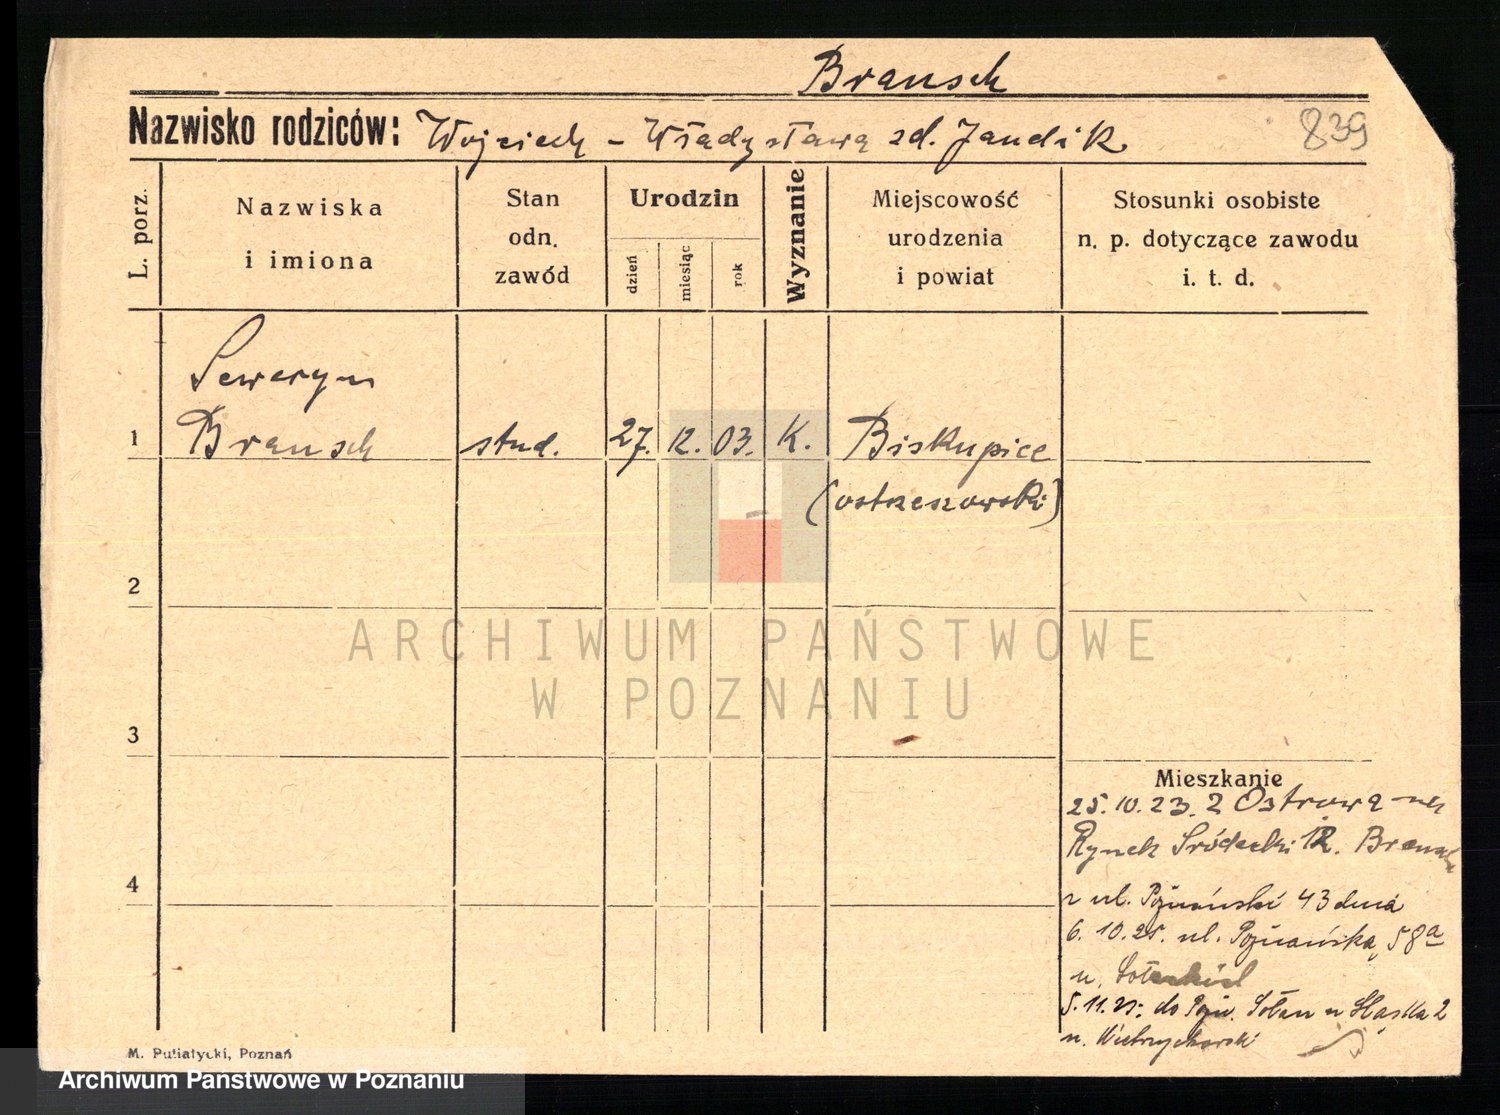 Bransch
Nazwisko rodziców: Wojciech - Władysława zd. Jandik
839
L. porz.
Nazwiska
i imiona
Stan
odn.
zawód
Urodzin
dzień
miesiąc
rok
Wyznanie
Miejscowość
urodzenia
i powiat
Stosunki osobiste
n. p. dotyczące zawodu
i. t. d.
Seweryn
1 Bransch stud. 27. 12. 03. K. Biskupice
(ostrzeszowski)
2
ARCHIWUM PAŃSTWOWE
W POZNANIU
3
Mieszkanie
25.10.23. z Ostrowa
Rynek Śródecki 12. Bransch
4
z ul. Poznański 43 dnia
6. 10.25. ul. Poznańska, 58a
u.
5.11.25: do Pozn. Sołacz u Śląska 2
u.
M. Putiatycki, Poznań
Archiwum Państwowe w Poznaniu